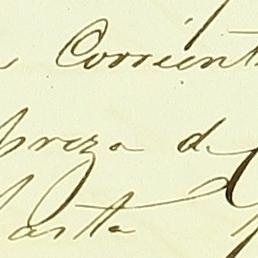 Corrient
preza de
asta